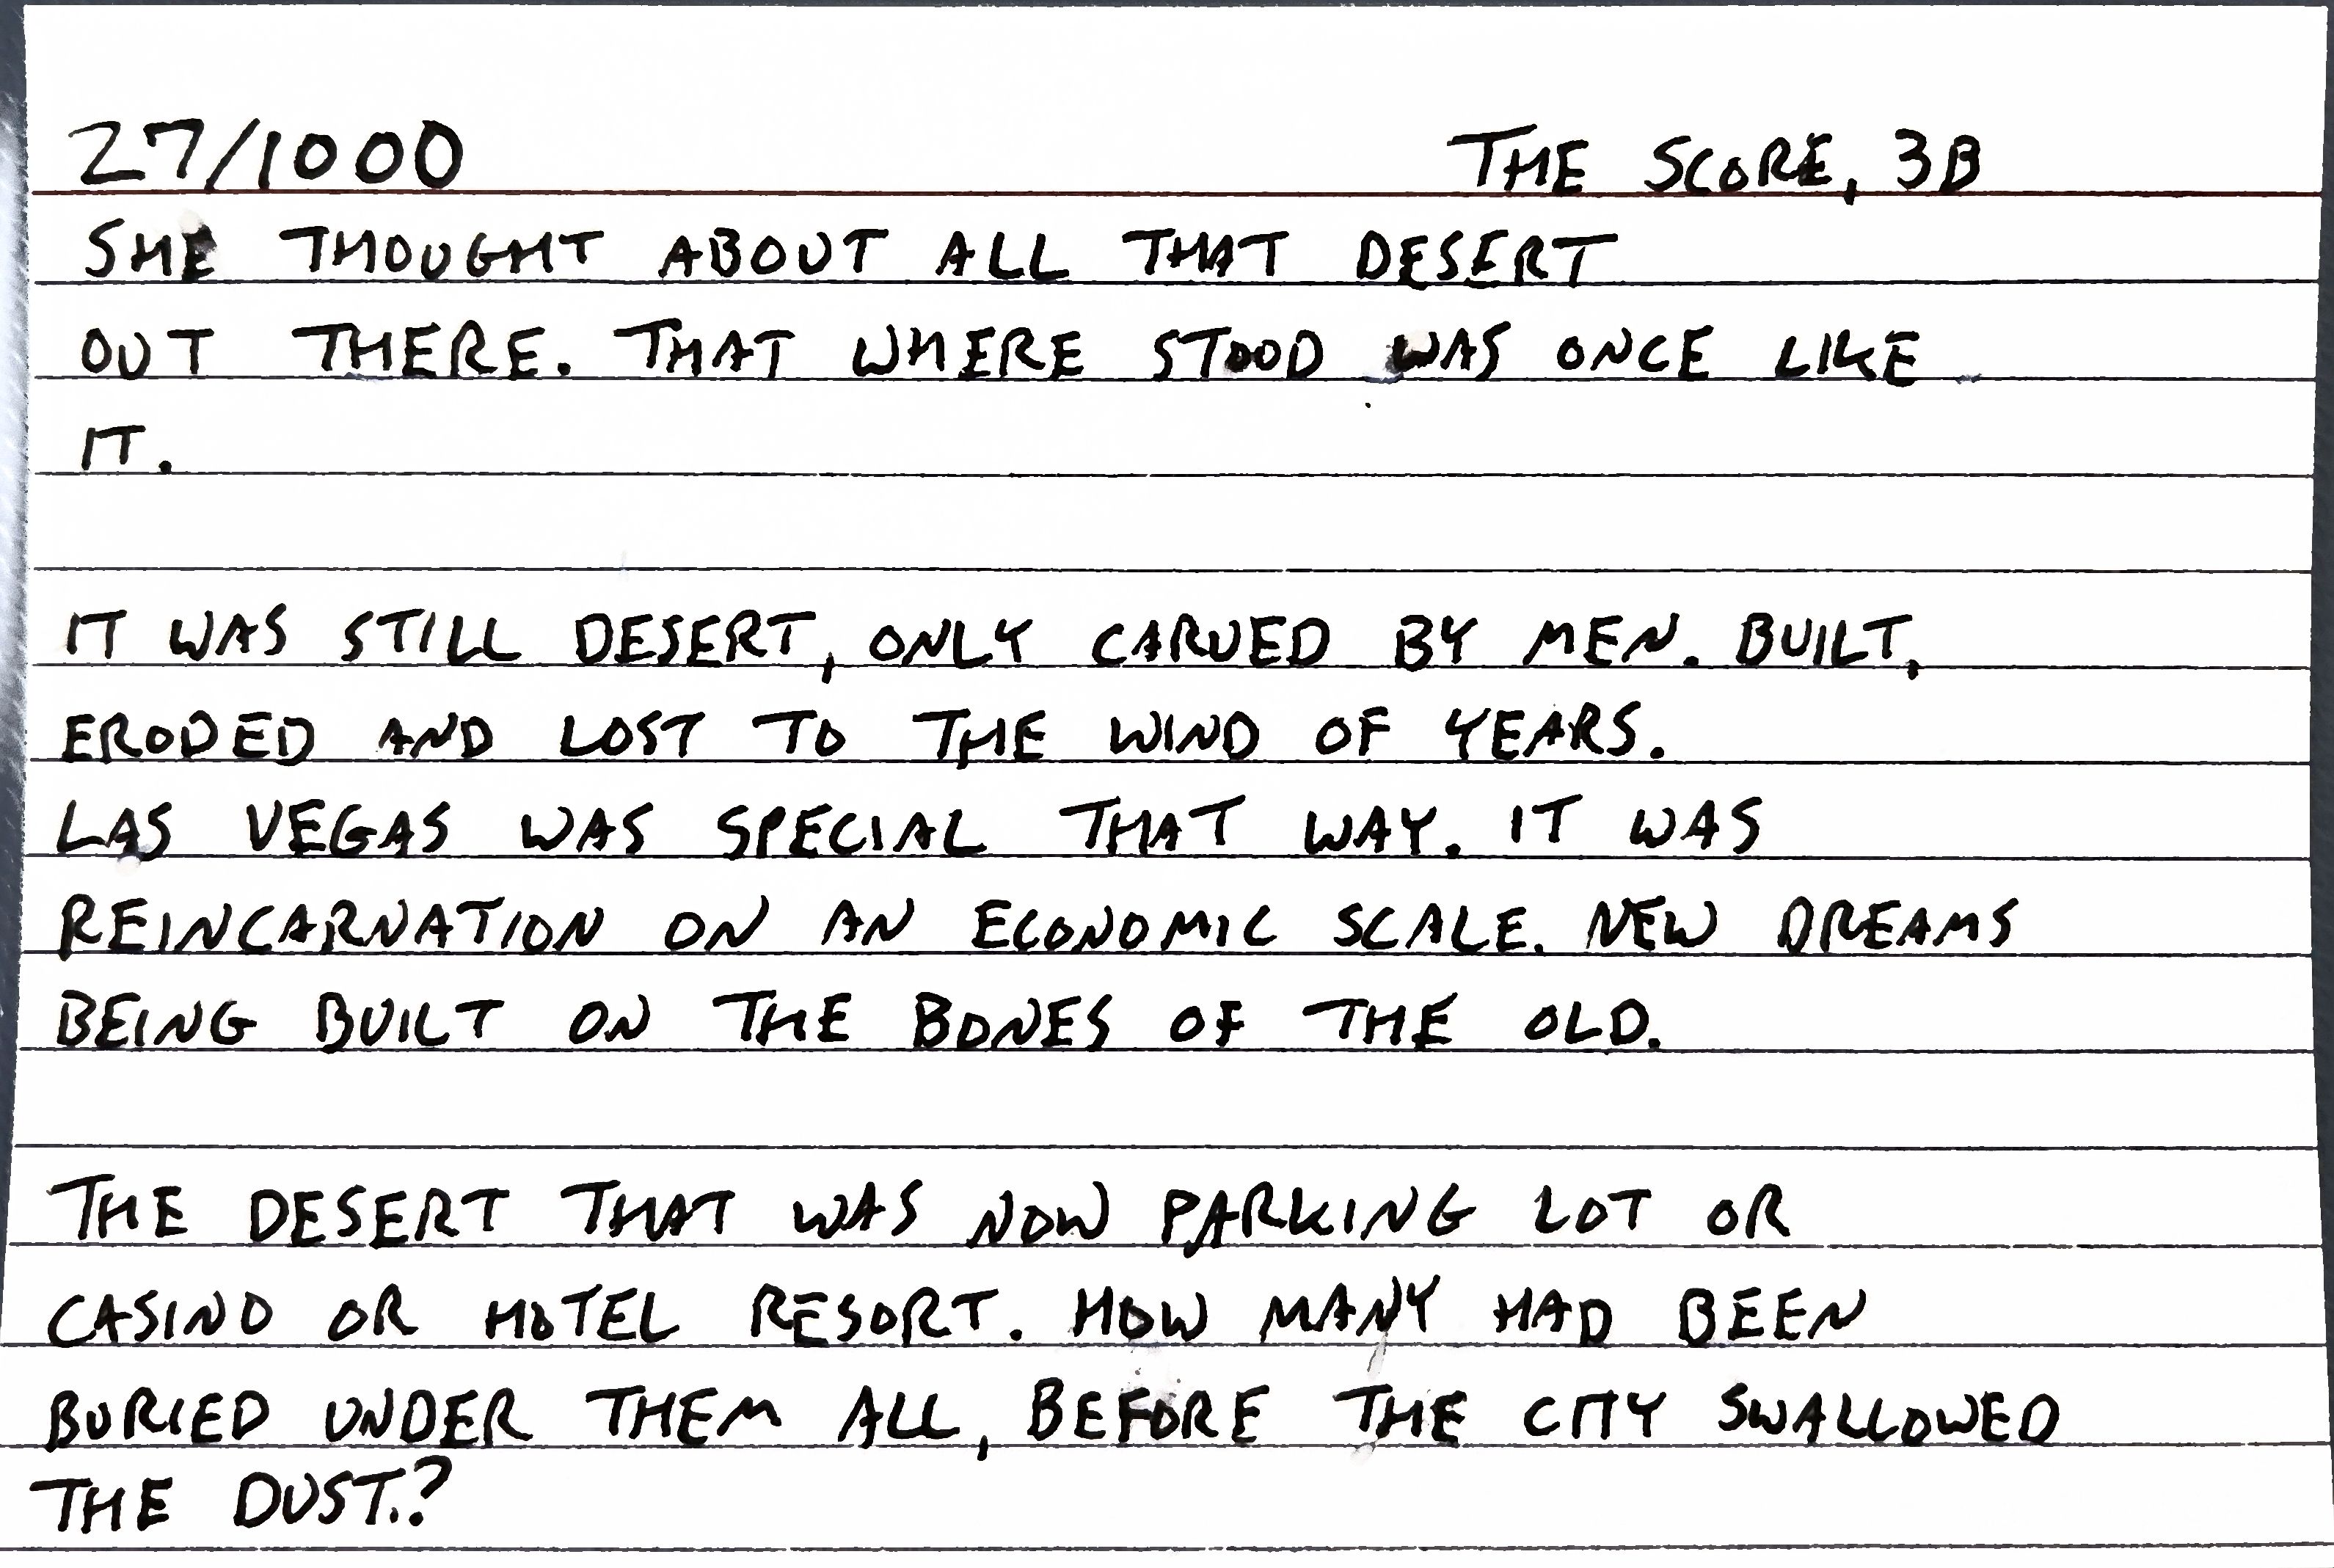 27/1000 THE SCORE, 3B
SHE THOUGHT ABOUT ALL THAT DESERT
OUT THERE. THAT WHERE STOOD WAS ONCE LIKE
IT.
IT WAS STILL DESERT, ONLY CARVED BY MEN. BUILT,
ERODED AND LOST TO THE WIND OF YEARS.
LAS VEGAS WAS SPECIAL THAT WAY. IT WAS
REINCARNATION ON AN ECONOMIC SCALE. NEW DREAMS
BEING BUILT ON THE BONES OF THE OLD.
THE DESERT THAT WAS NOW PARKING LOT OR
CASINO OR HOTEL RESORT. HOW MANY HAD BEEN
BURIED UNDER THEM ALL, BEFORE THE CITY SWALLOWED
THE DUST.?